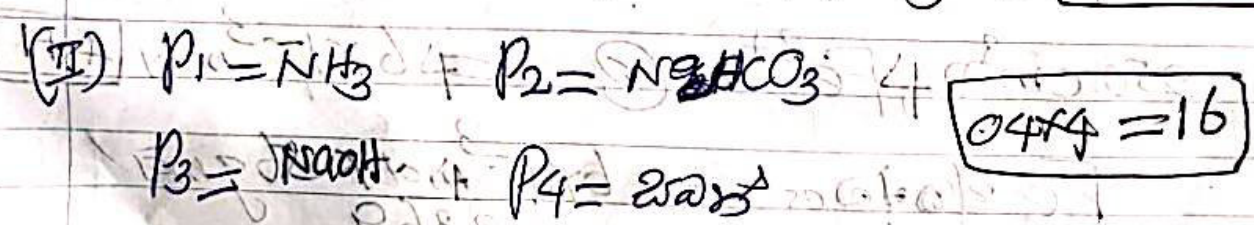 (II) P₁ = NH₃ + P₂ = NaHCO₃ 4
04×4 = 16
P₃ = NaOH + P₄ = සබන්